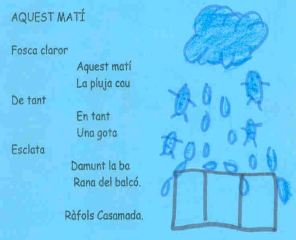 AQUEST MATÍ
Fosca claror
Aquest matí
La pluja cau
De tant
En tant
Una gota
Esclata
Damunt la ba
Rana del balcó.
Ràfols Casamada.